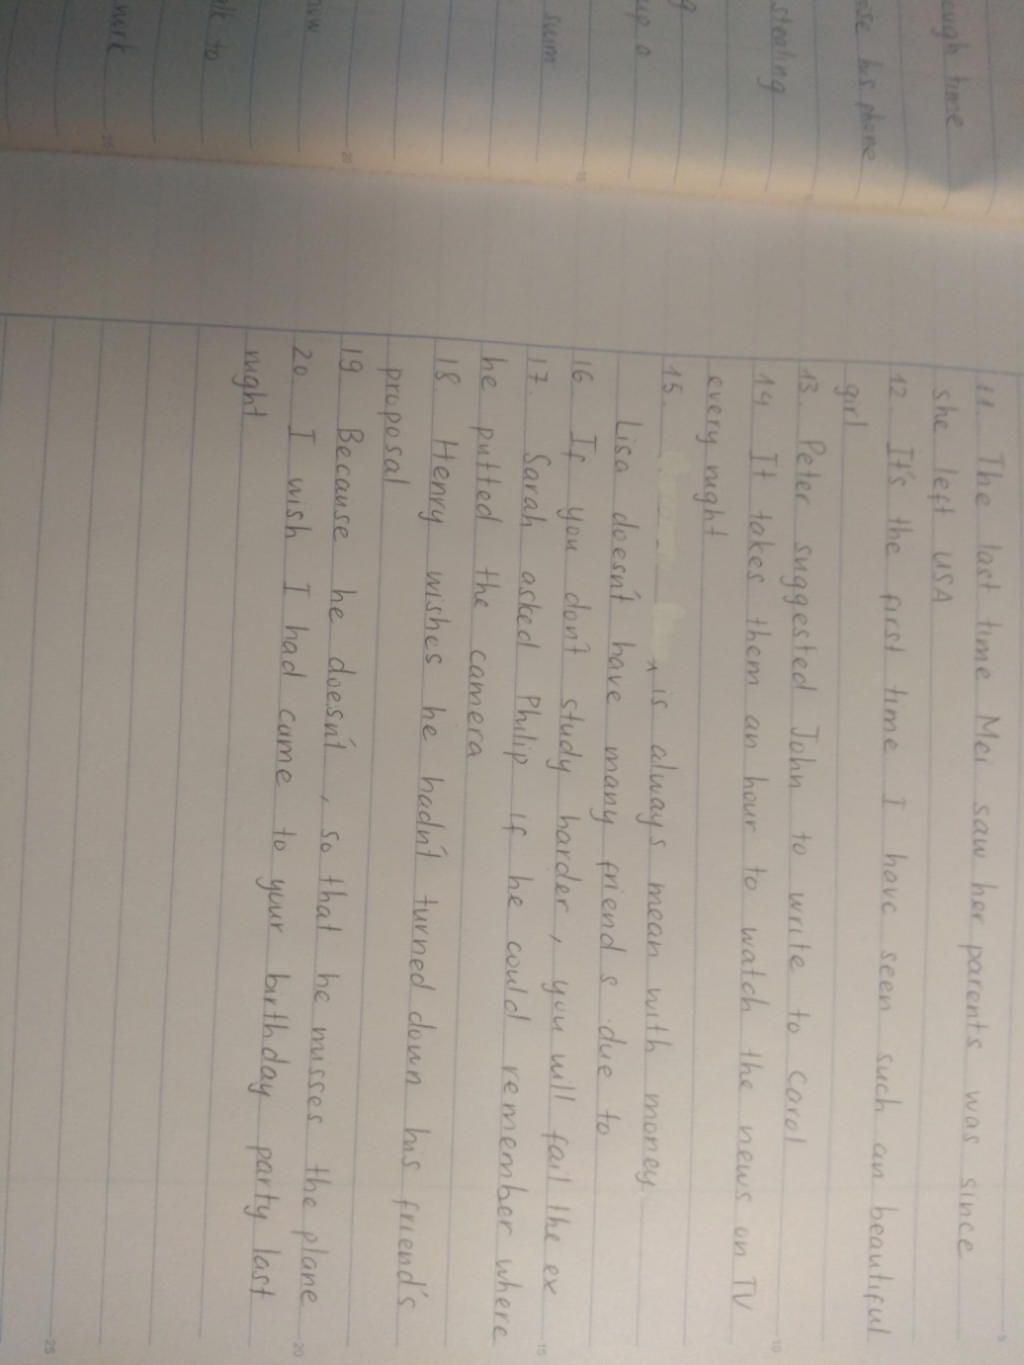 ough time
his phone
stealing
up a
swim
to
11. The last time Mei saw her parents was since
she left USA
12 It's the first time I have seen such an beautiful
girl
13. Peter suggested John to write to carol
14 It takes them an hour to watch the news on TV
every night
15. ^ is always mean with money
Lisa doesn't have many friends due to
16. If you don't study harder, you will fail the ex
17. Sarah asked Philip if he could remember where
he putted the camera
18. Henry wishes he hadn't turned down his friend's
proposal
19 Because he doesn't, so that he misses the plane
20 I wish I had came to your birthday party last
night
10
15
20
25
20